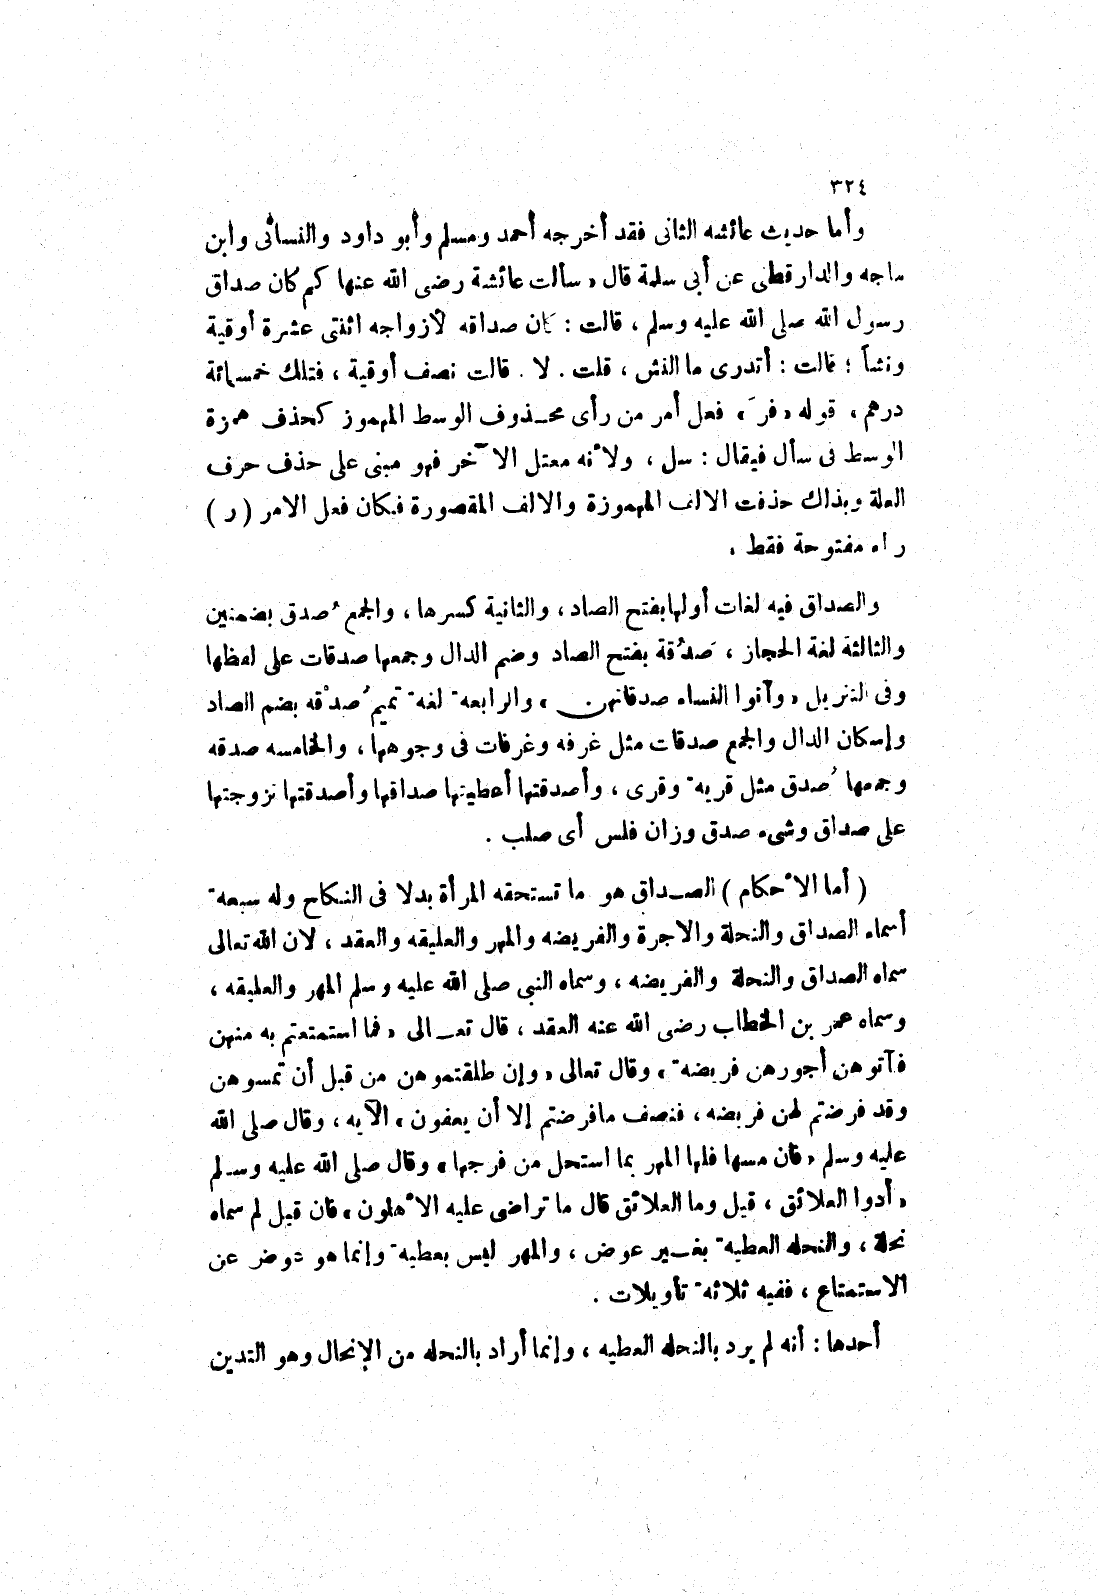 ٣٢٤
وأما حديث عائشه الثانى فقد أخرجه أحمد ومسلم وأبو داود والنسائى وابن
ماجه والدارقطنى عن أبى سلمة قال « سألت عائشة رضى الله عنها كم كان صداق
رسول الله صلى الله عليه وسلم ، قالت : كان صداقه لأزواجه اثنتى عشرة أوقية
ونشأ ؛ قالت : أتدرى ما النش ، قلت . لا . قالت نصف أوقية ، فتلك خمسمائة
درهم ، قوله « فرَ » فعل أمر من رأى محـذوف الوسط المهموز كحذف همزة
الوسط فى سأل فيقال : سل ، ولأنه معتل الآخر فهو مبنى على حذف حرف
العلة وبذاك حذفت الالف المهموزة والالف المقصورة فكان فعل الامر ( ر )
راء مفتوحة فقط .
والصداق فيه لغات أولها بفتح الصاد ، والثانية كسرها ، والجمع صُدق بضمتين
والثالثة لغة الحجاز ، صَدُقة بفتح الصاد وضم الدال وجمعها صدقات على لفظها
وفى التنزيل « وآتوا النساء صدقاتهن » والرابعة لغة تميم صُدْقه بضم الصاد
وإسكان الدال والجمع صدقات مثل غرفه وغرفات فى وجوهها ، والخامسه صدقه
وجمعها صُدق مثل قرية وقرى ، وأصدقتها أعطيتها صداقها وأصدقتها تزوجتها
على صداق وشىء صدق وزان فلس أى صلب .
( أما الأحكام ) الصـداق هو ما تستحقه المرأة بدلا فى النكاح وله سبعة
أسماء الصداق والنحلة والاجرة والفريضه والمهر والعليقه والعقد ، لان الله تعالى
سماه الصداق والنحلة والفريضه ، وسماه النبى صلى الله عليه وسلم المهر والعليقه ،
وسماه عمر بن الخطاب رضى الله عنه العقد ، قال تعـالى « فما استمتعتم به منهن
فآتوهن أجورهن فريضة » وقال تعالى « وإن طلقتموهن من قبل أن تمسوهن
وقد فرضتم لهن فريضه ، فنصف مافرضتم إلا أن يعفون » الآيه ، وقال صلى الله
عليه وسلم « فان مسها فلها المهر بما استحل من فرجها » وقال صلى الله عليه وسلم
« أدوا العلائق ، قيل وما العلائق قال ما تراضى عليه الأهلون » فان قيل لم سماه
نحلة ، والنحله العطية بغـير عوض ، والمهر ليس بعطية وإنما هو عوض عن
الاستمتاع ، ففيه ثلاثة تأويلات .
أحدها : أنه لم يرد بالنحله العطيه ، وإنما أراد بالنحله من الإنحال وهو التدين